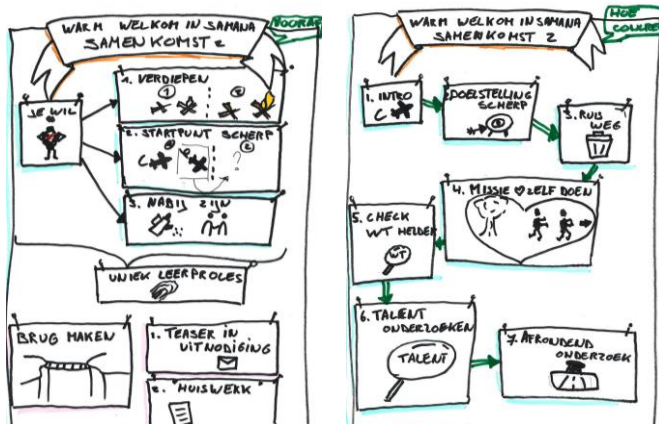 WARM WELKOM IN SAMANA
SAMENKOMST 2
VOORAF
JE WIL
1. VERDIEPEN
1
2
2. STARTPUNT SCHERP
3. NABIJ ZIJN
UNIEK LEERPROCES
BRUG MAKEN
1. TEASER IN
UITNODIGING
2. "HUISWERK"
WARM WELKOM IN SAMANA
SAMENKOMST 2
HOE
CONCREET
1. INTRO
2. DOELSTELLING
SCHERP
3. RUIS
WEG
4. MISSIE ZELF DOEN
5. CHECK
WT HELDER
WT
6. TALENT
ONDERZOEKEN
TALENT
7. AFRONDEND
ONDERZOEK